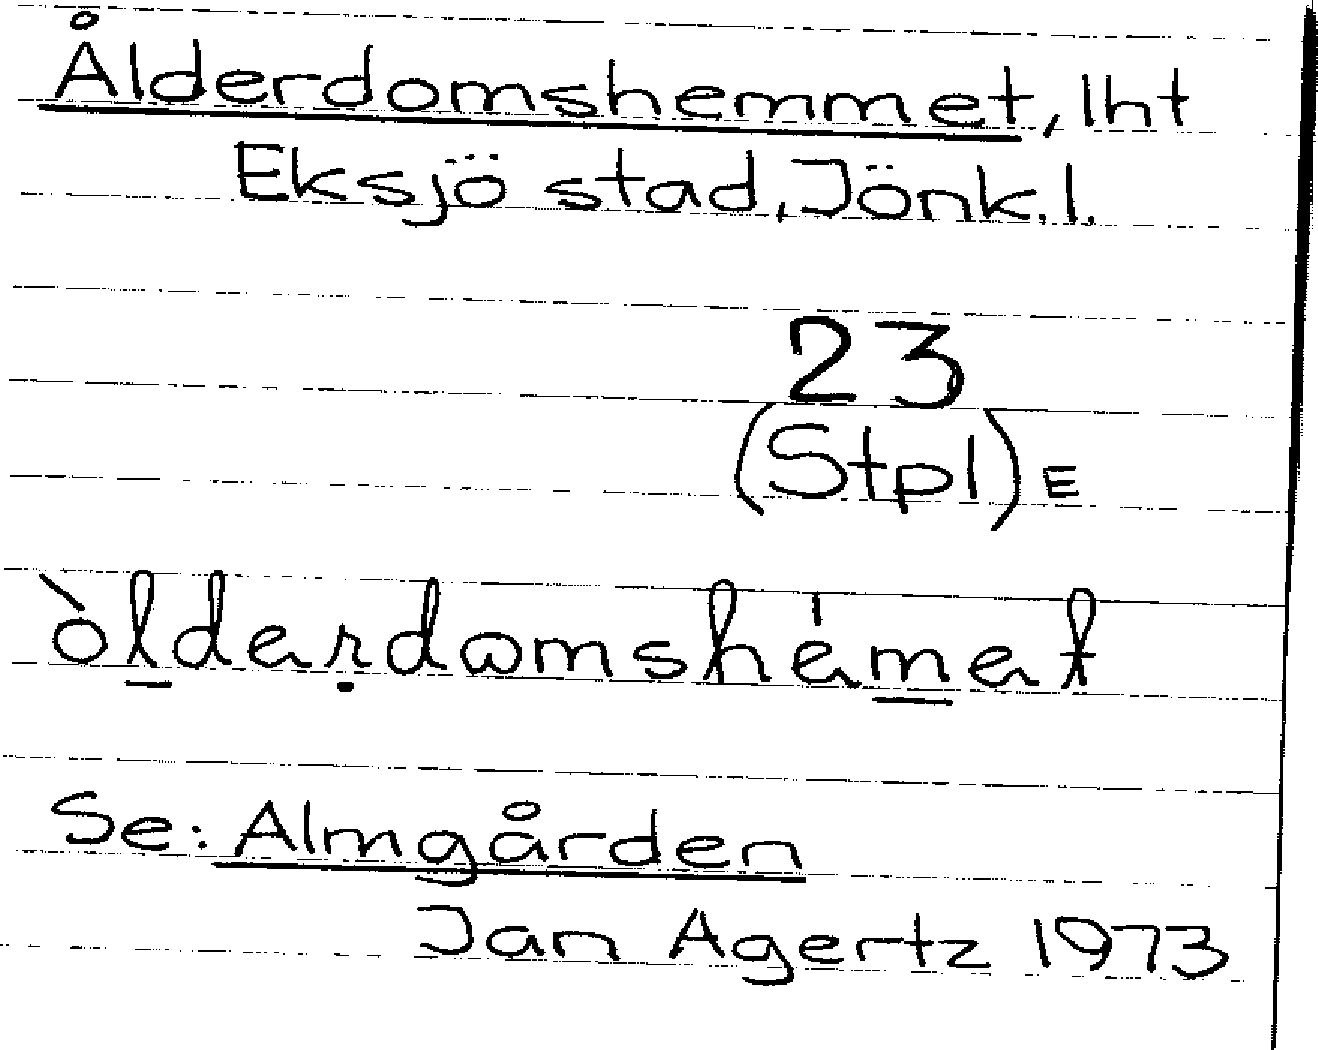 Ålderdomshemmet, lht
Eksjö stad, Jönk.l.
23
(Stpl) E
ò̀lderḍomshémet
Se: Almgården
Jan Agertz 1973